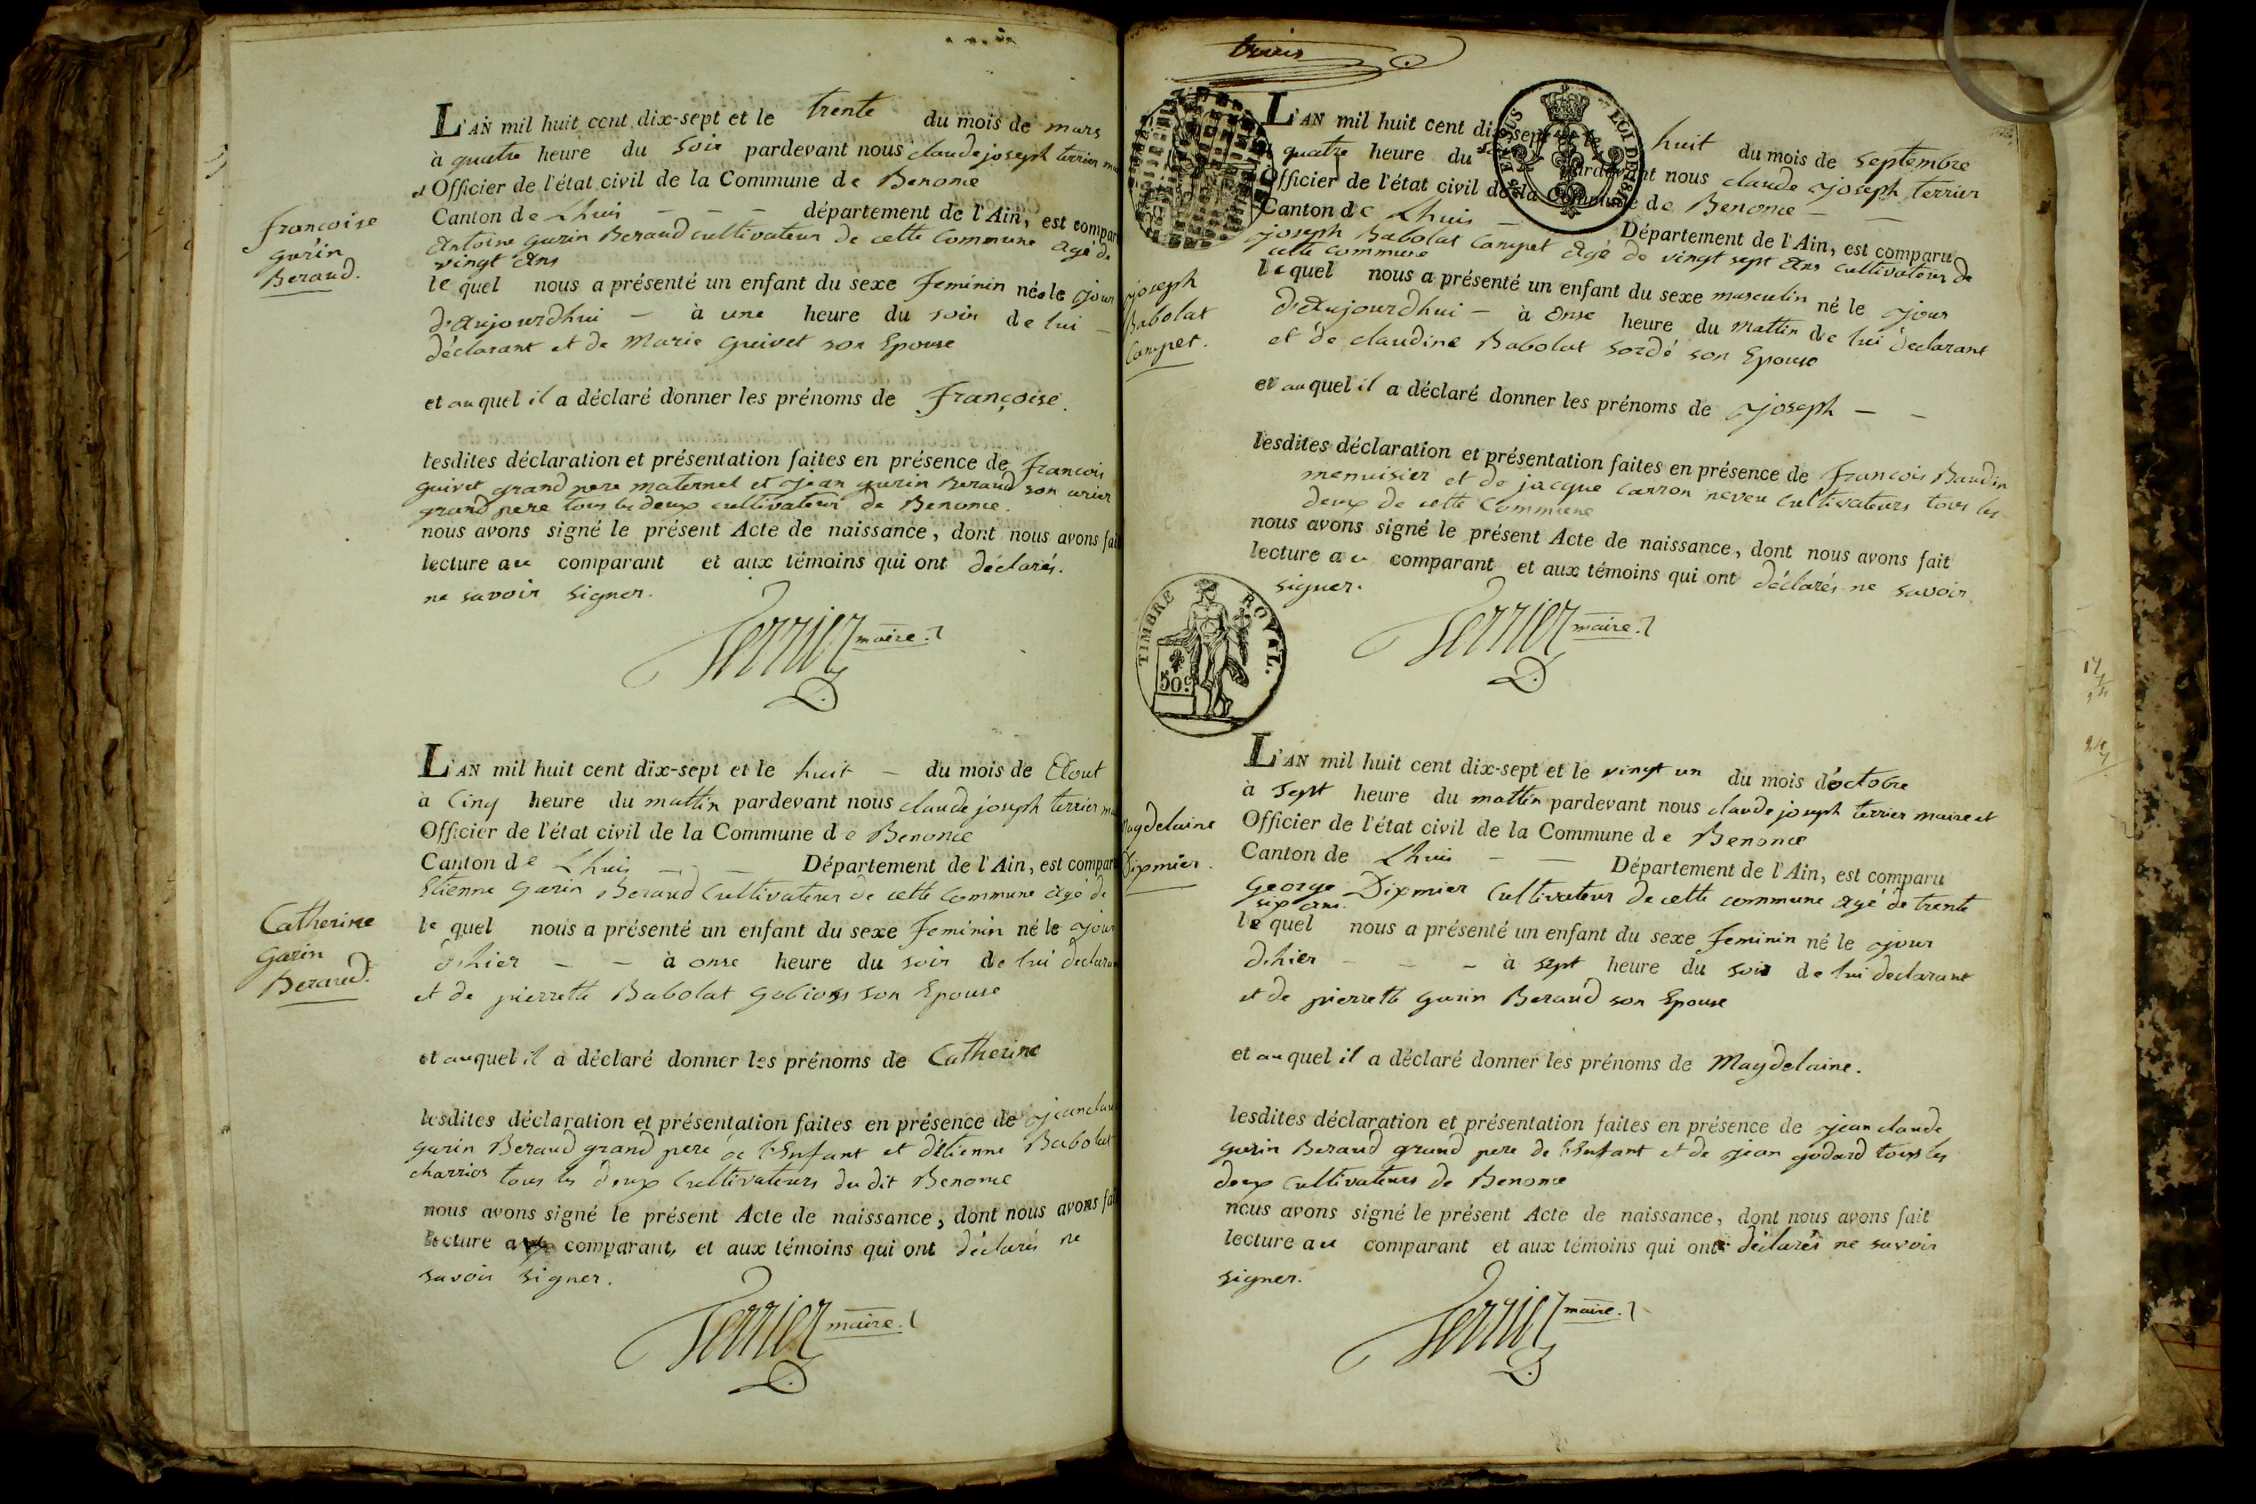 francoise
garin
Beraud.
L'AN mil huit cent dix-sept et le trente du mois de mars
à quatre heure du soir pardevant nous claude joseph terrier
et Officier de l'état civil de la Commune de Benonce
Canton de Lhuis — — — département de l'Ain, est compar
Antoine garin Beraud cultivateur de cette commune agé de
vingt ans
le quel nous a présenté un enfant du sexe feminin née le jour
d'aujourdhui — à une heure du soir de lui —
déclarant et de Marie guivet son Epouse
et auquel il a déclaré donner les prénoms de françoise.
lesdites déclaration et présentation faites en présence de francois
guivet grand pere maternel et jean garin Beraud son arier
grand pere tous les deux cultivateur de Benonce.
nous avons signé le présent Acte de naissance, dont nous avons fait
lecture au comparant et aux témoins qui ont déclarés.
ne savoir signer.
Terrier maire.
Catherine
garin
Beraud.
L'AN mil huit cent dix-sept et le huit — du mois de Aout
à Cinq heure du mattin pardevant nous claude joseph terrier
Officier de l'état civil de la Commune de Benonce
Canton de Lhuis — — Département de l'Ain, est compar
Etienne garin Beraud Cultivateur de cette commune agé de
le quel nous a présenté un enfant du sexe feminin né le jour
d'hier — — à onse heure du soir de lui declaran
et de pierrette Babolat gobion son Epouse
et auquel il a déclaré donner les prénoms de Catherine
lesdites déclaration et présentation faites en présence de jean clau
garin Beraud grand pere de l'Enfant et d'étienne Babolat
charrior tous les deux Cultivateurs du dit Benonce
nous avons signé le présent Acte de naissance, dont nous avons fai
lecture au comparant, et aux témoins qui ont déclarés ne
savoir signer.
Terrier maire.
trois
LOI DE 1816
joseph
Babolat
Campet.
L'AN mil huit cent dix-sept et le huit du mois de septembre
à quatre heure du soir pardevant nous claude joseph terrier
Officier de l'état civil de la Commune de Benonce —
Canton de Lhuis — Département de l'Ain, est comparu
joseph Babolat Campet agé de vingt sept ans cultivateur de
cette commune
le quel nous a présenté un enfant du sexe masculin né le jour
d'aujourdhui — à onse heure du mattin de lui declarant
et de claudine Babolat sordé son Epouse
et auquel il a déclaré donner les prénoms de joseph — —
lesdites déclaration et présentation faites en présence de francois Baudin
menuisier et de jacque carron neveu cultivateurs tous les
deux de cette Commune
nous avons signé le présent Acte de naissance, dont nous avons fait
lecture au comparant et aux témoins qui ont déclarés ne savoir
signer.
TIMBRE ROYAL.
50 c
Terrier maire.
Magdelaine
Dixmier.
L'AN mil huit cent dix-sept et le vingt un du mois d'octobre
à sept heure du mattin pardevant nous claude joseph terrier maire et
Officier de l'état civil de la Commune de Benonce
Canton de Lhuis — — Département de l'Ain, est comparu
George Dixmier Cultivateur de cette commune agé de trente
six ans.
le quel nous a présenté un enfant du sexe feminin né le jour
d'hier — — — à sept heure du soir de lui declarant
et de pierrette garin Beraud son Epouse
et auquel il a déclaré donner les prénoms de Magdelaine.
lesdites déclaration et présentation faites en présence de jean claude
garin Beraud grand pere de l'Enfant et de jean godard tous les
deux Cultivateurs de Benonce
nous avons signé le présent Acte de naissance, dont nous avons fait
lecture au comparant et aux témoins qui ont déclarés ne savoir
signer.
Terrier maire.